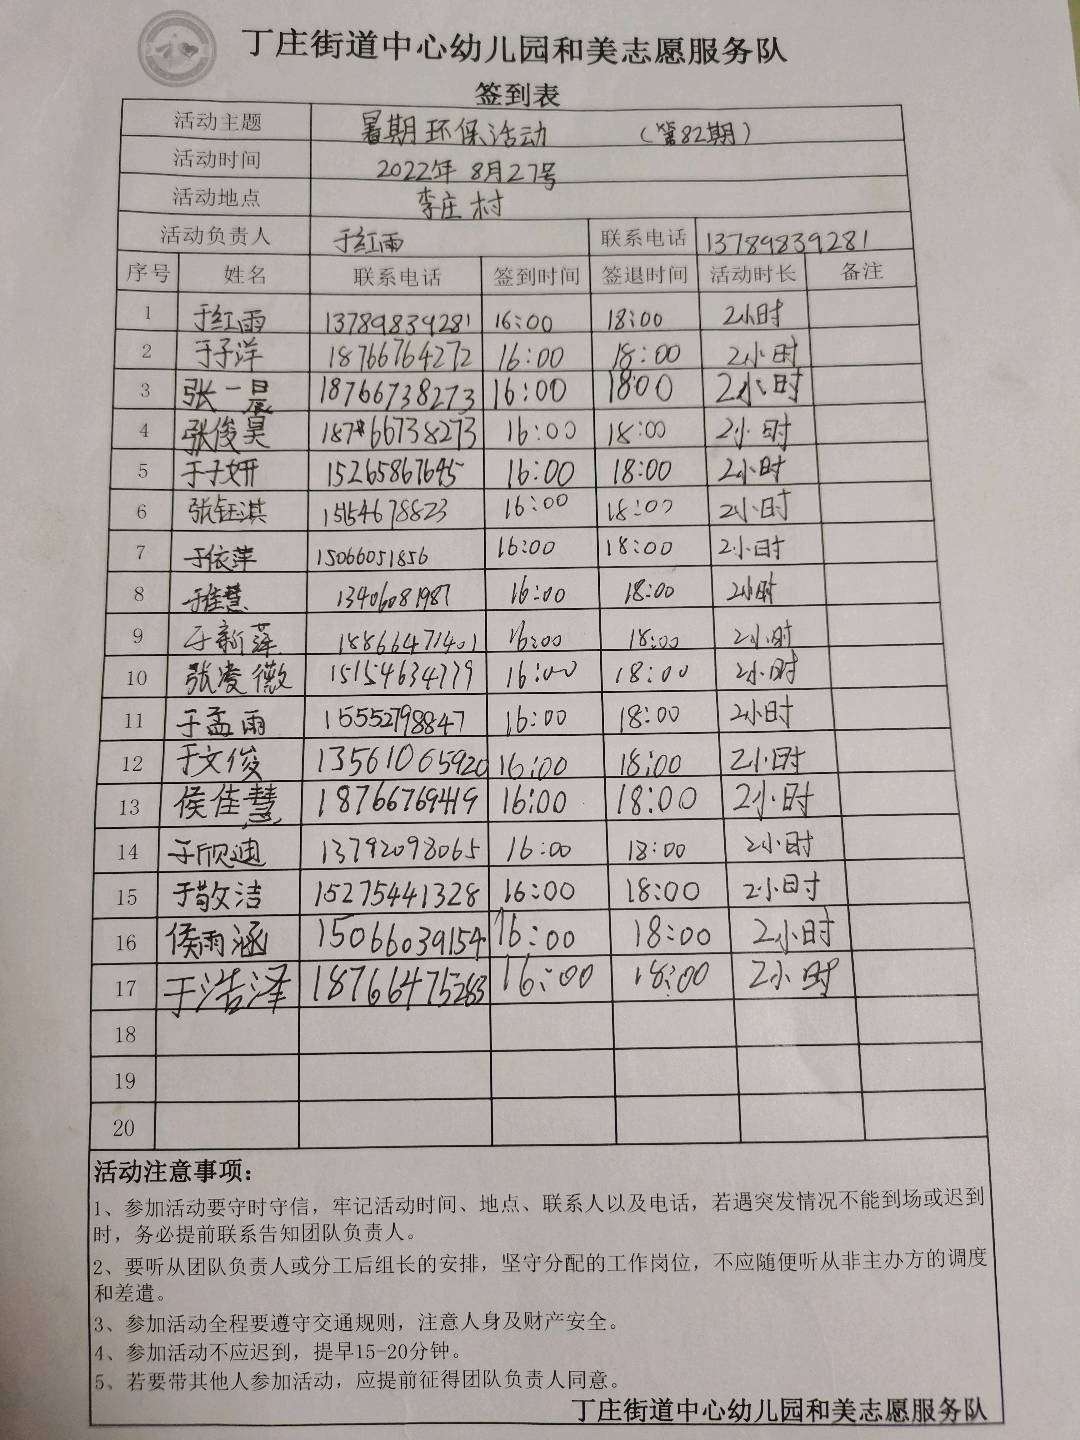 丁庄街道中心幼儿园和美志愿服务队
签到表
活动主题 暑期环保活动 (第82期)
活动时间 2022年8月27号
活动地点 李庄村
活动负责人 于红雨 联系电话 13789839281
序号 姓名 联系电话 签到时间 签退时间 活动时长 备注
1 于红雨 13789839281 16:00 18:00 2小时
2 于子洋 18766764272 16:00 18:00 2小时
3 张一晨 18766738273 16:00 1800 2小时
4 张俊昊 18766738273 16:00 18:00 2小时
5 于子妍 15265867645 16:00 18:00 2小时
6 张钰淇 15154678823 16:00 18:00 2小时
7 于依萍 15066051856 16:00 18:00 2小时
8 于佳慧 13406081987 16:00 18:00 2小时
9 于新萍 18866471401 16:00 18:00 2小时
10 张凌薇 15154634779 16:00 18:00 2小时
11 于孟雨 15552798847 16:00 18:00 2小时
12 于文俊 13561065920 16:00 18:00 2小时
13 侯佳慧 18766769419 16:00 18:00 2小时
14 于欣迪 13792098065 16:00 18:00 2小时
15 于敬洁 15275441328 16:00 18:00 2小时
16 侯雨涵 15066039154 16:00 18:00 2小时
17 于浩泽 18766475283 16:00 18:00 2小时
18
19
20
活动注意事项:
1、参加活动要守时守信，牢记活动时间、地点、联系人以及电话，若遇突发情况不能到场或迟到
时，务必提前联系告知团队负责人。
2、要听从团队负责人或分工后组长的安排，坚守分配的工作岗位，不应随便听从非主办方的调度
和差遣。
3、参加活动全程要遵守交通规则，注意人身及财产安全。
4、参加活动不应迟到，提早15-20分钟。
5、若要带其他人参加活动，应提前征得团队负责人同意。
丁庄街道中心幼儿园和美志愿服务队